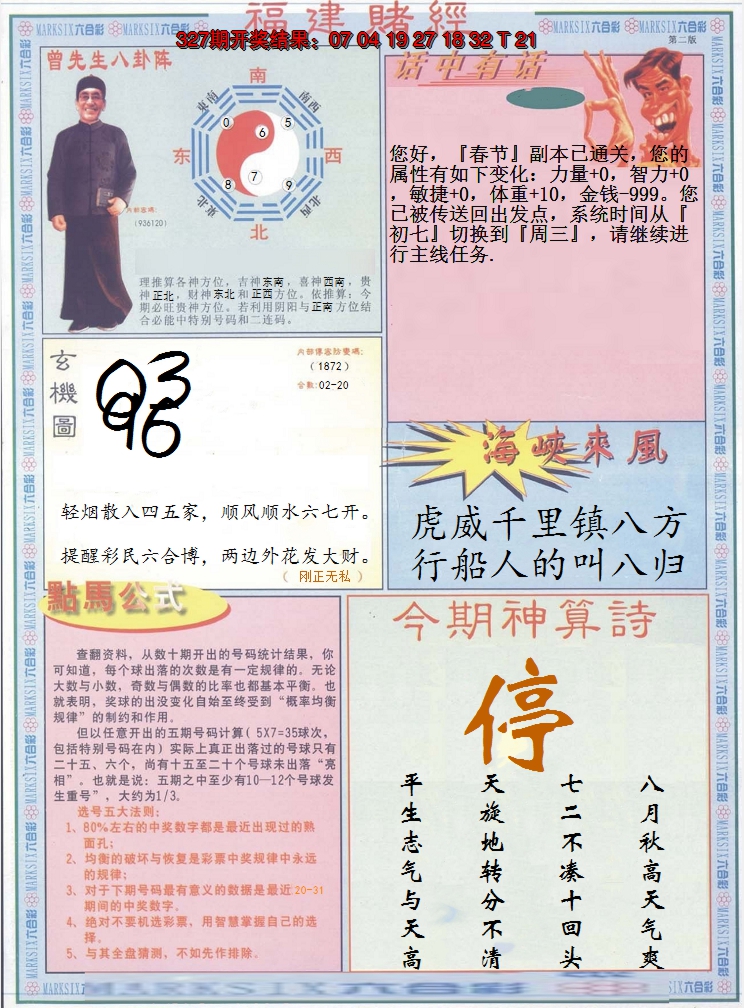 福建賭經
327期开奖结果：07 04 19 27 18 32 T 21
第二版
曾先生八卦阵
南
东南
南西
0
6
5
东
西
8
7
9
东北
北西
北
内部密碼:
(936120)
理推算各神方位，吉神东南，喜神西南，贵
神正北，财神东北和正西方位。依推算：今
期必旺贵神方位。若利用阴阳与正南方位结
合必能中特别号码和二连码。
话中有话
您好，『春节』副本已通关，您的
属性有如下变化：力量+0，智力+0
，敏捷+0，体重+10，金钱-999。您
已被传送回出发点，系统时间从『
初七』切换到『周三』，请继续进
行主线任务.
玄機圖
03
96
内部傳密防雙碼:
(1872)
合數:02-20
轻烟散入四五家，顺风顺水六七开。
提醒彩民六合博，两边外花发大财。
（ 刚正无私 ）
海峽來風
虎威千里镇八方
行船人的叫八归
點馬公式
查翻资料，从数十期开出的号码统计结果，你
可知道，每个球出落的次数是有一定规律的。无论
大数与小数，奇数与偶数的比率也都基本平衡。也
就表明，奖球的出没变化自始至终受到“概率均衡
规律”的制约和作用。
但以任意开出的五期号码计算( 5X7=35球次，
包括特别号码在内) 实际上真正出落过的号球只有
二十五、六个，尚有十五至二十个号球未出落“亮
相”。也就是说：五期之中至少有10—12个号球发
生重号”，大约为1/3。
选号五大法则：
1、80%左右的中奖数字都是最近出现过的熟
面孔；
2、均衡的破坏与恢复是彩票中奖规律中永远
的规律；
3、对于下期号码最有意义的数据是最近20-31
期间的中奖数字。
4、绝对不要机选彩票，用智慧掌握自己的选
择。
5、与其全盘猜测，不如先作排除。
今期神算詩
停
八月秋高天气爽
七二不凑十回头
天旋地转分不清
平生志气与天高
MARKSIX六合彩